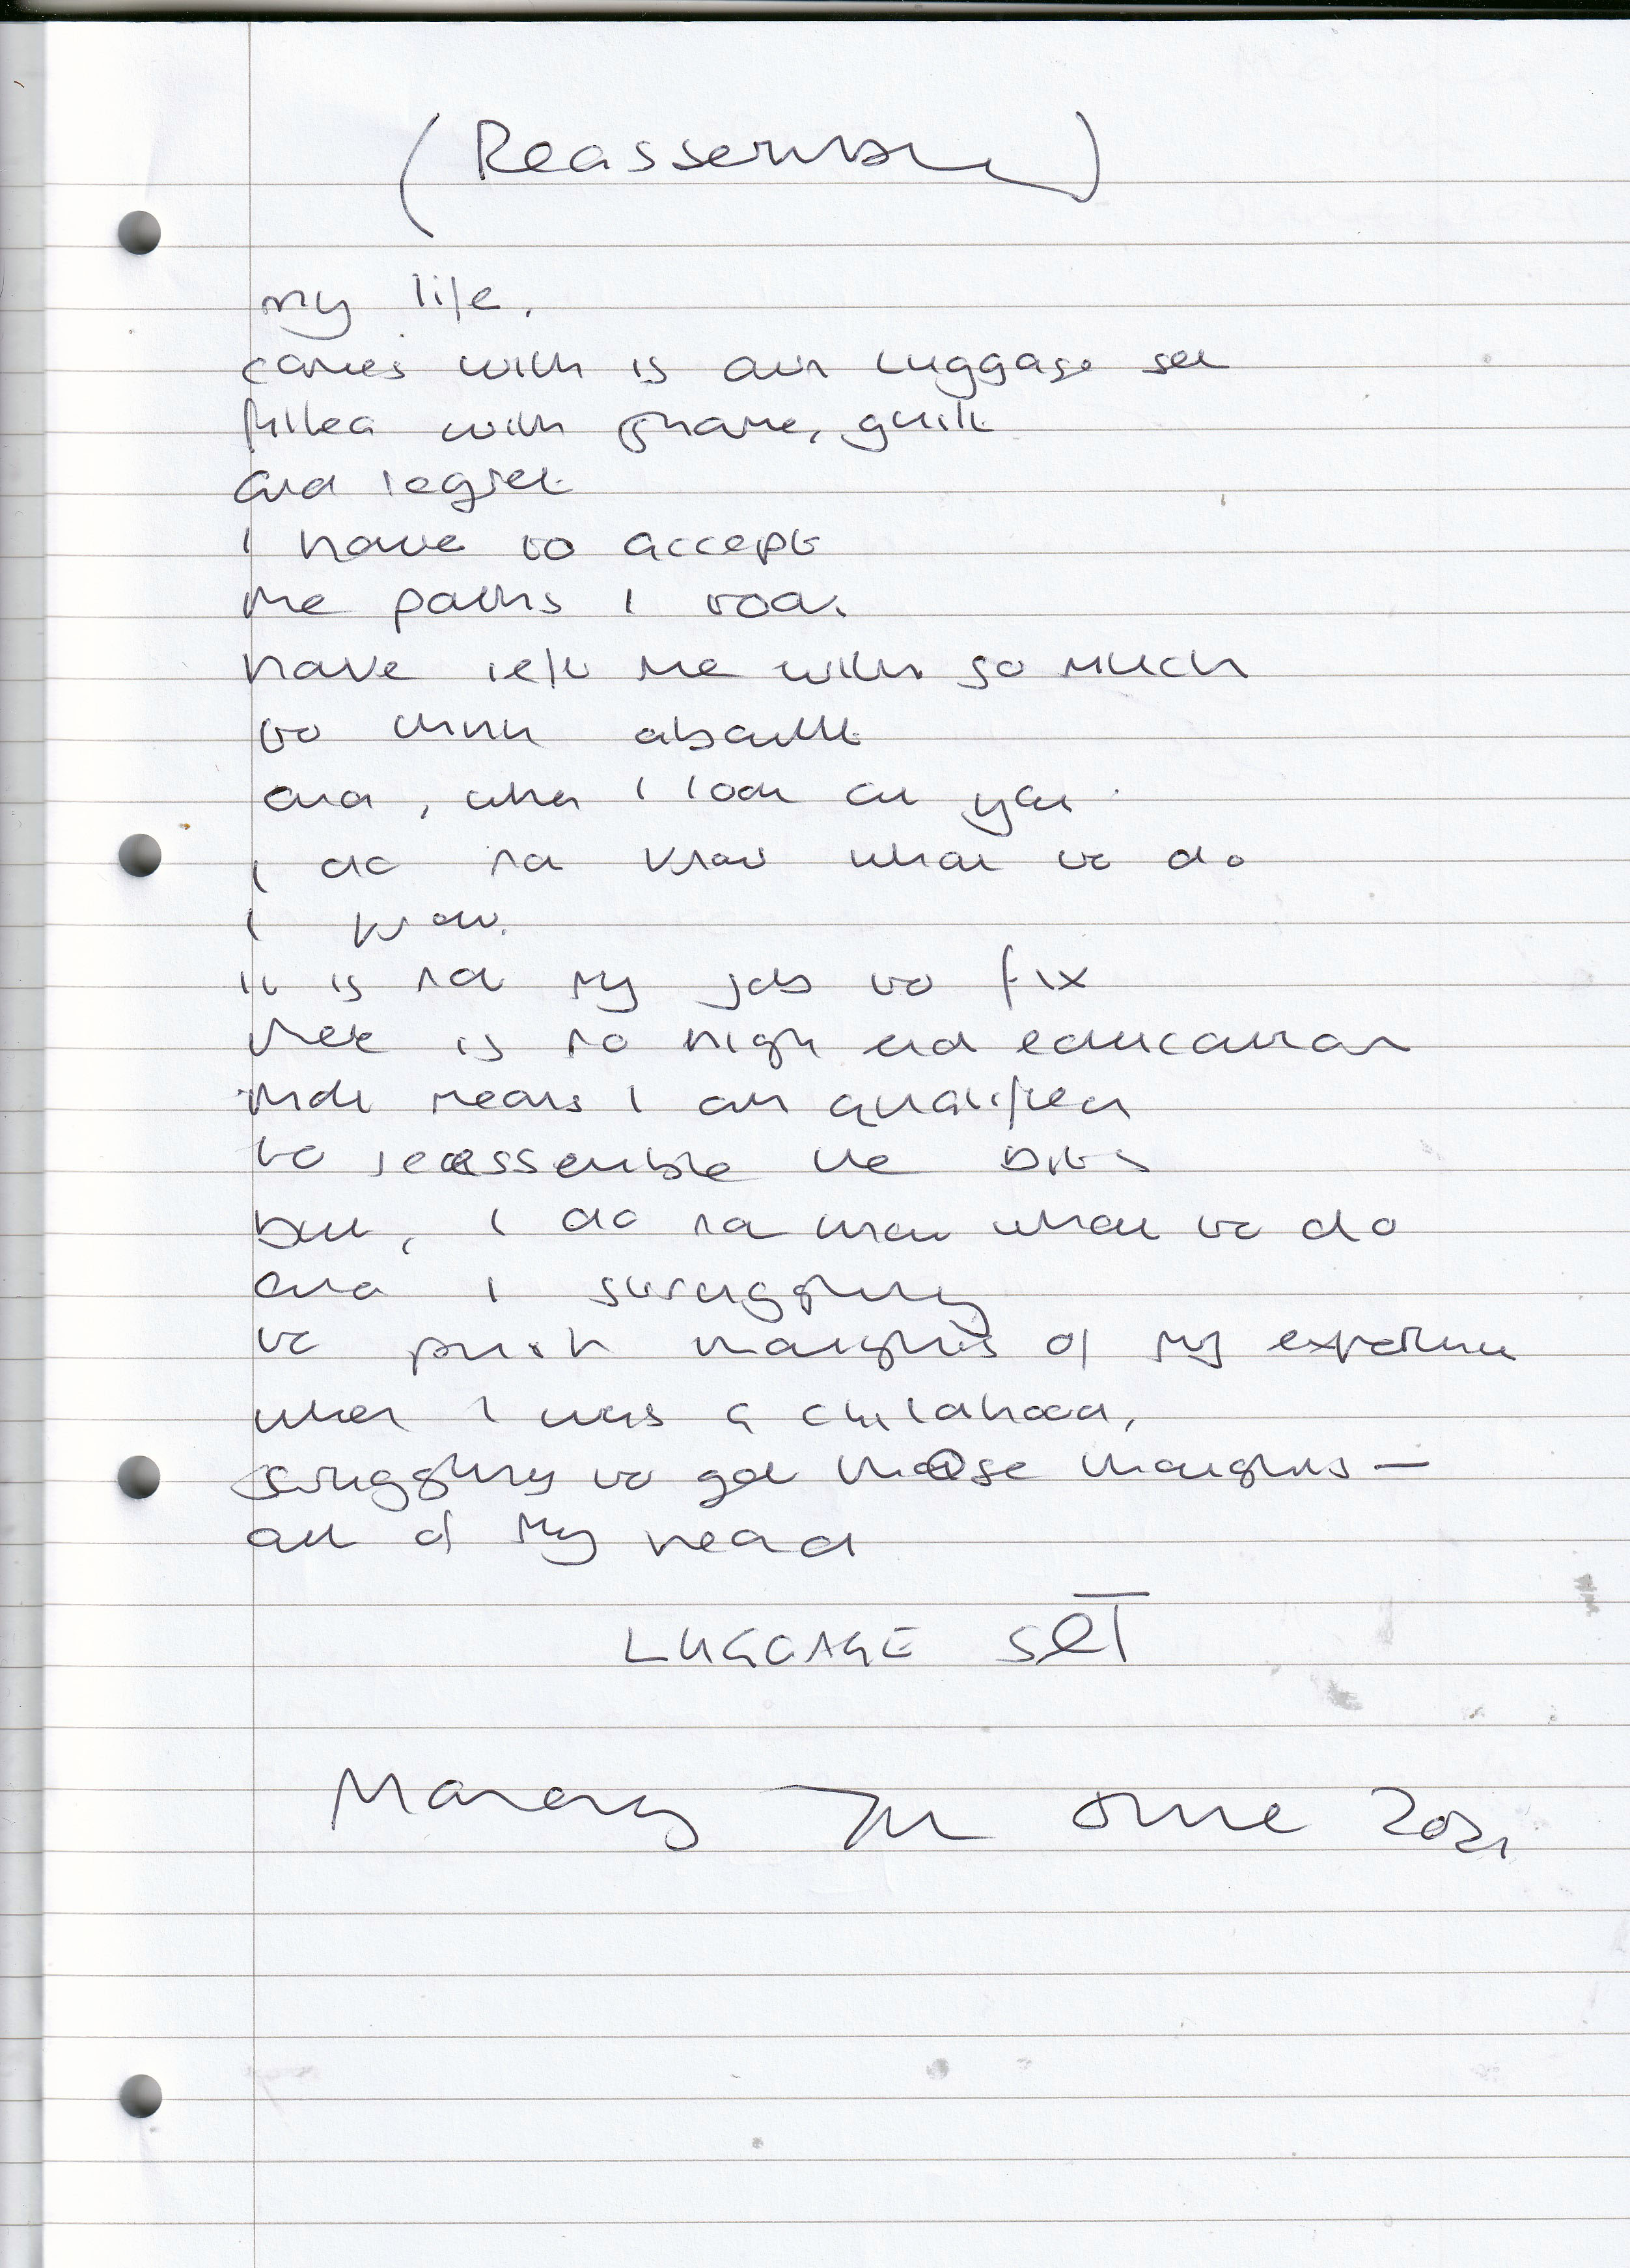 (Reassemble)
my life,
comes with is own luggage set
filled with shame, guilt
and regret
I have to accept
the paths I trod.
have left me with so much
to think about
and, when I look at you
I do not know what to do
I know.
it is not my job to fix
there is no high end education
that means I am qualified
to reassemble the bits
but, I do not know what to do
and I struggling
to push thoughts of my
when I was a childhood,
struggling to get those thoughts —
out of my head
LUGGAGE SET
Monday June 2021